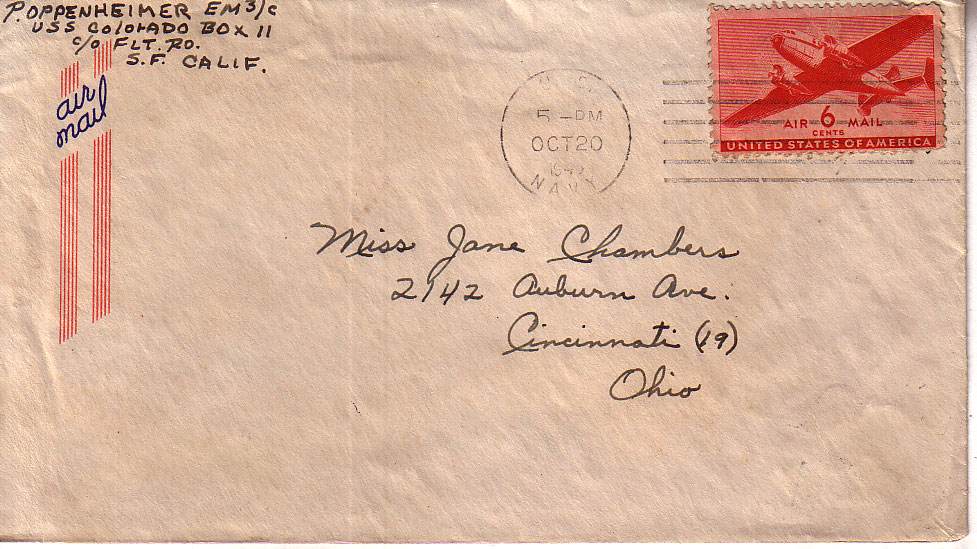 P. OPPENHEIMER EM 3/c
USS COLORADO BOX 11
c/o FLT. P.O.
S.F. CALIF.
air
mail
5 - PM
OCT 20
NAVY
AIR 6 MAIL
CENTS
UNITED STATES OF AMERICA
Miss Jane Chambers
2142 Auburn Ave.
Cincinnati (19)
Ohio